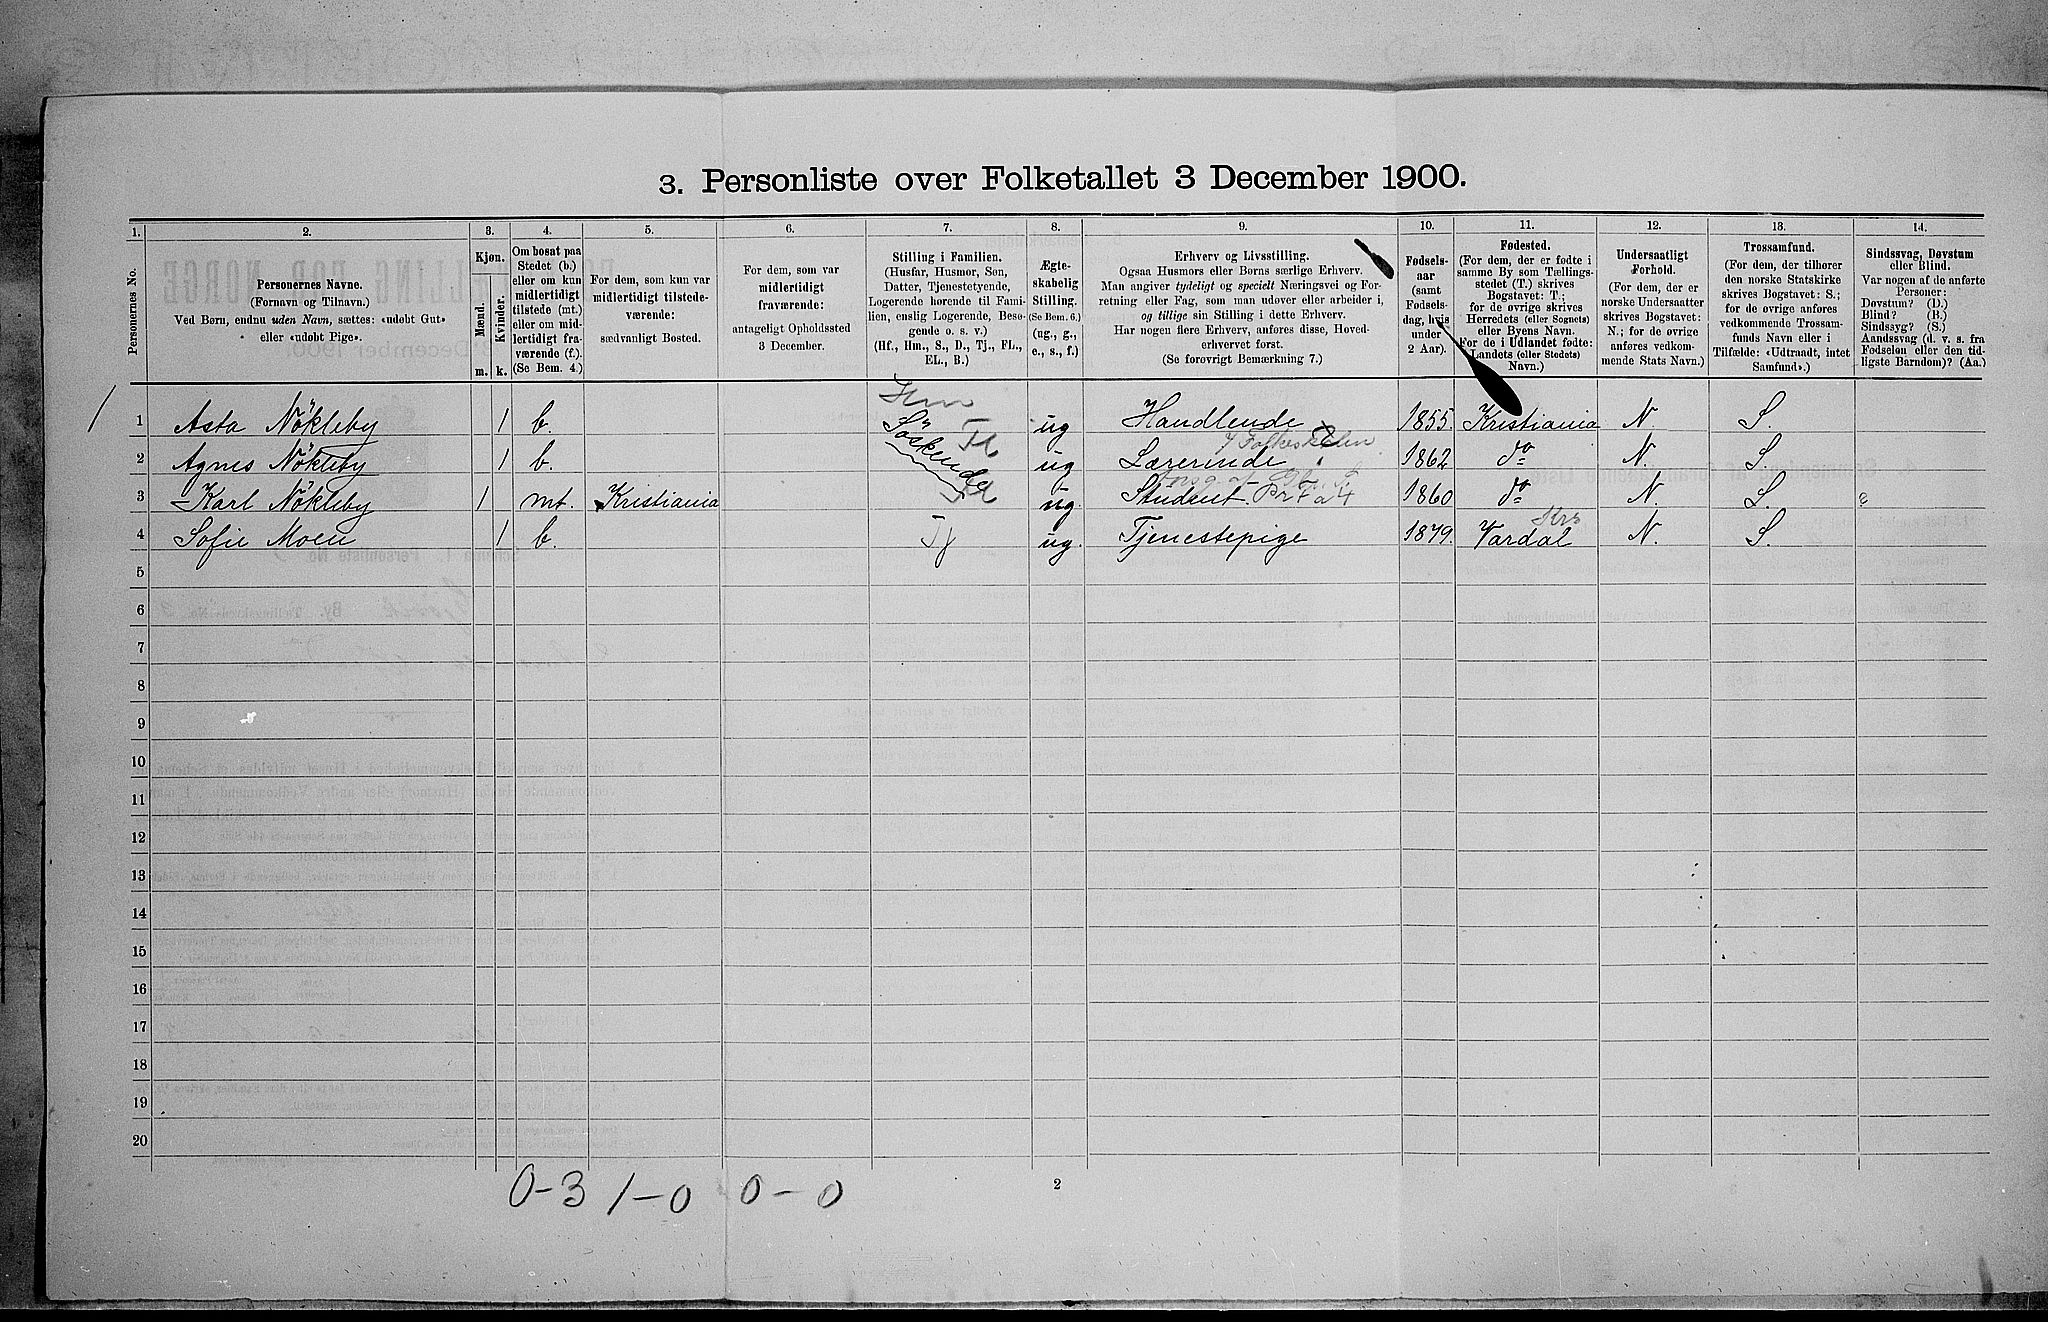 3. Personliste over Folketallet 3 December 1900.
1. 2. 3. 4. 5. 6. 7. 8. 9. 10. 11. 12. 13. 14.
Personernes No.
Personernes Navne.
(Fornavn og Tilnavn.)
Ved Børn, endnu uden Navn, sættes: «udøbt Gut»
eller «udøbt Pige».
Kjøn.
Mænd.
Kvinder.
m. k.
Om bosat paa
Stedet (b.)
eller om kun
midlertidigt
tilstede (mt.)
eller om mid-
lertidigt fra-
værende (f.).
(Se Bem. 4.)
For dem, som kun var
midlertidigt tilstede-
værende:
sædvanligt Bosted.
For dem, som var
midlertidigt
fraværende:
antageligt Opholdssted
3 December.
Stilling i Familien.
(Husfar, Husmor, Søn,
Datter, Tjenestetyende,
Logerende hørende til Fami-
lien, enslig Logerende, Besø-
gende o. s. v.)
(Hf., Hm., S., D., Tj., FL.,
EL., B.)
Ægte-
skabelig
Stilling.
(Se Bem. 6.)
(ug., g.,
e., s., f.)
Erhverv og Livsstilling.
Ogsaa Husmors eller Børns særlige Erhverv.
Man angiver tydeligt og specielt Næringsvei og For-
retning eller Fag, som man udøver eller arbeider i,
og tillige sin Stilling i dette Erhverv.
Har nogen flere Erhverv, anføres disse, Hoved-
erhvervet først.
(Se forøvrigt Bemærkning 7.)
Fødsels-
aar
(samt
Fødsels-
dag, hvis
under
2 Aar).
Fødested.
(For dem, der er fødte i
samme By som Tællings-
stedet (T.) skrives
Bogstavet: T.;
for de øvrige skrives
Herredets (eller Sognets)
eller Byens Navn.
For de i Udlandet fødte:
Landets (eller Stedets)
Navn.)
Undersaatligt
Forhold.
(For dem, der er
norske Undersaatter
skrives Bogstavet:
N.; for de øvrige
anføres vedkom-
mende Stats Navn.)
Trossamfund.
(For dem, der tilhører
den norske Statskirke
skrives Bogstavet: S.;
for de øvrige anføres
vedkommende Trossam-
funds Navn eller i
Tilfælde: «Udtraadt, intet
Samfund».)
Sindssvag, Døvstum
eller Blind.
Var nogen af de anførte
Personer:
Døvstum? (D.)
Blind? (B.)
Sindssyg? (S.)
Aandssvag (d. v. s. fra
Fødselen eller den tid-
ligste Barndom)? (Aa.)
1 Asta Nökleby 1 b. Söskende ug Handlende 1855. Kristiania N. S.
i Folkeskolen
2 Agnes Nökleby 1 b. ug Lærerinde 1862 do N. S.
3 Karl Nökleby 1 mt. Kristiania ug. Student 1860 do N. S.
4 Sofie Moen 1 b. Tj ug. Tjenestepige 1879. Vardal N. S.
5
6
7
8
9
10
11
12
13
14
15
16
17
18
19
20
0-3 1-0 0-0
2